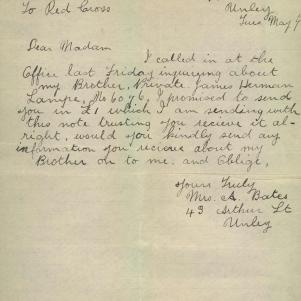 To Red Cross
Unley
Tues May 9
Dear Madam
I called in at the
Office last Friday inquiring about
my Brother, Private James Herman
Lampe, No 6076, I promised to send
you in £1 which I am sending with
this note trusting you recieve it al-
right, would you kindly send any
information you recieve about my
Brother on to me. and Oblige,
Yours Truly
Mrs. A. Bates
43 Arthur St
Unley